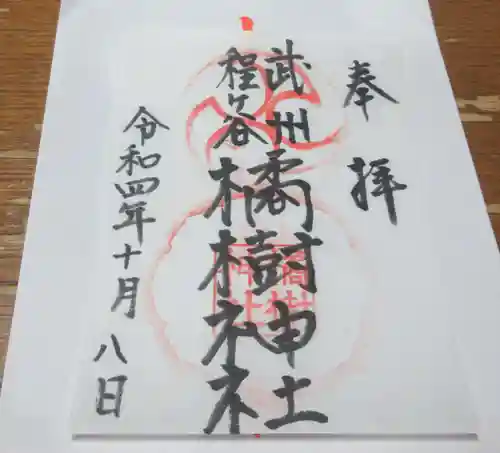 奉拝
武州
程ヶ谷
橘樹神社
令和四年十月八日
橘樹
神社